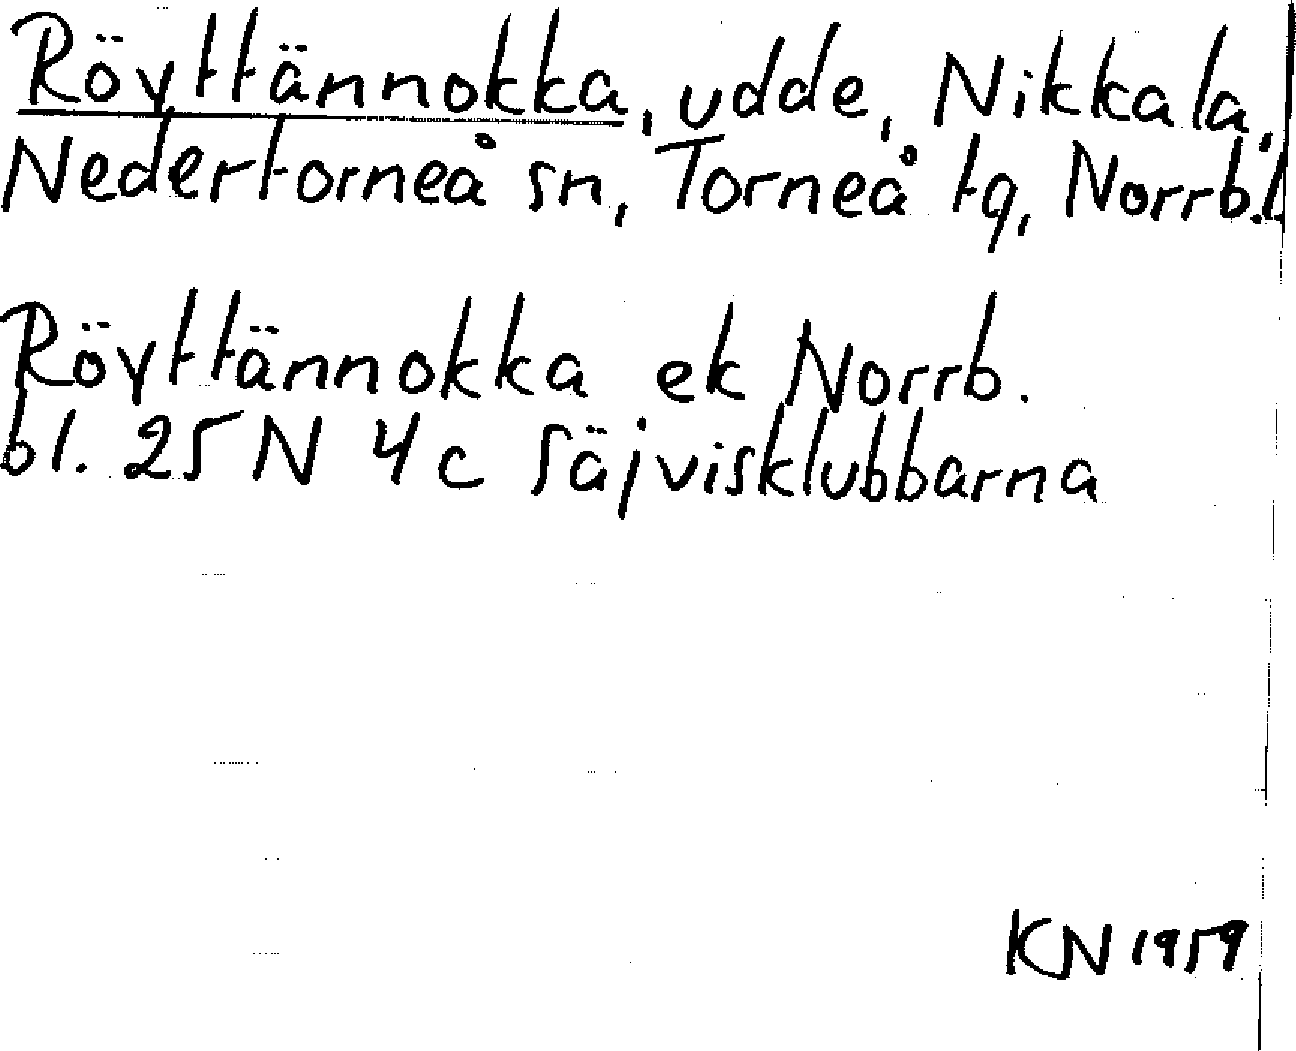 Röyttännokka, udde, Nikkala,
Nedertorneå sn, Torneå tg, Norrb.l.
Röyttännokka ek Norrb.
bl. 25 N 4c Säjvisklubbarna
KN 1959